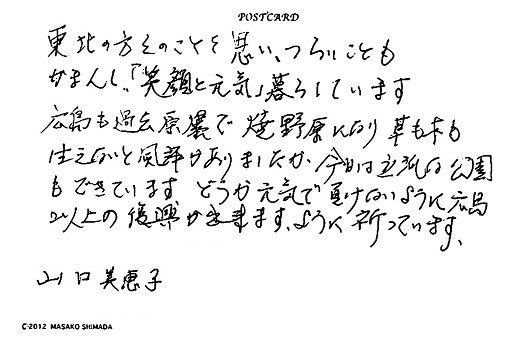 POSTCARD
東北の方々のことを思い、つらいことも
がまんし、「笑顔と元気」暮らしています
広島も過去原爆で焼野原になり草も木も
生えないと風評がありましたが、今日は立派な公園
もできています どうか元気で負けないように広島
以上の復興が出来ます、ように祈っています、
山口美恵子
©2012 MASAKO SHIMADA